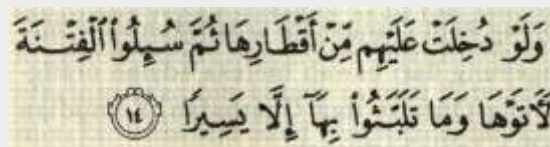 وَلَوْ دُخِلَتْ عَلَيْهِم مِّنْ أَقْطَارِهَا ثُمَّ سُئِلُوا۟ الْفِتْنَةَ
لَأَتَوْهَا وَمَا تَلَبَّثُوا۟ بِهَآ إِلَّا يَسِيرًا ١٤